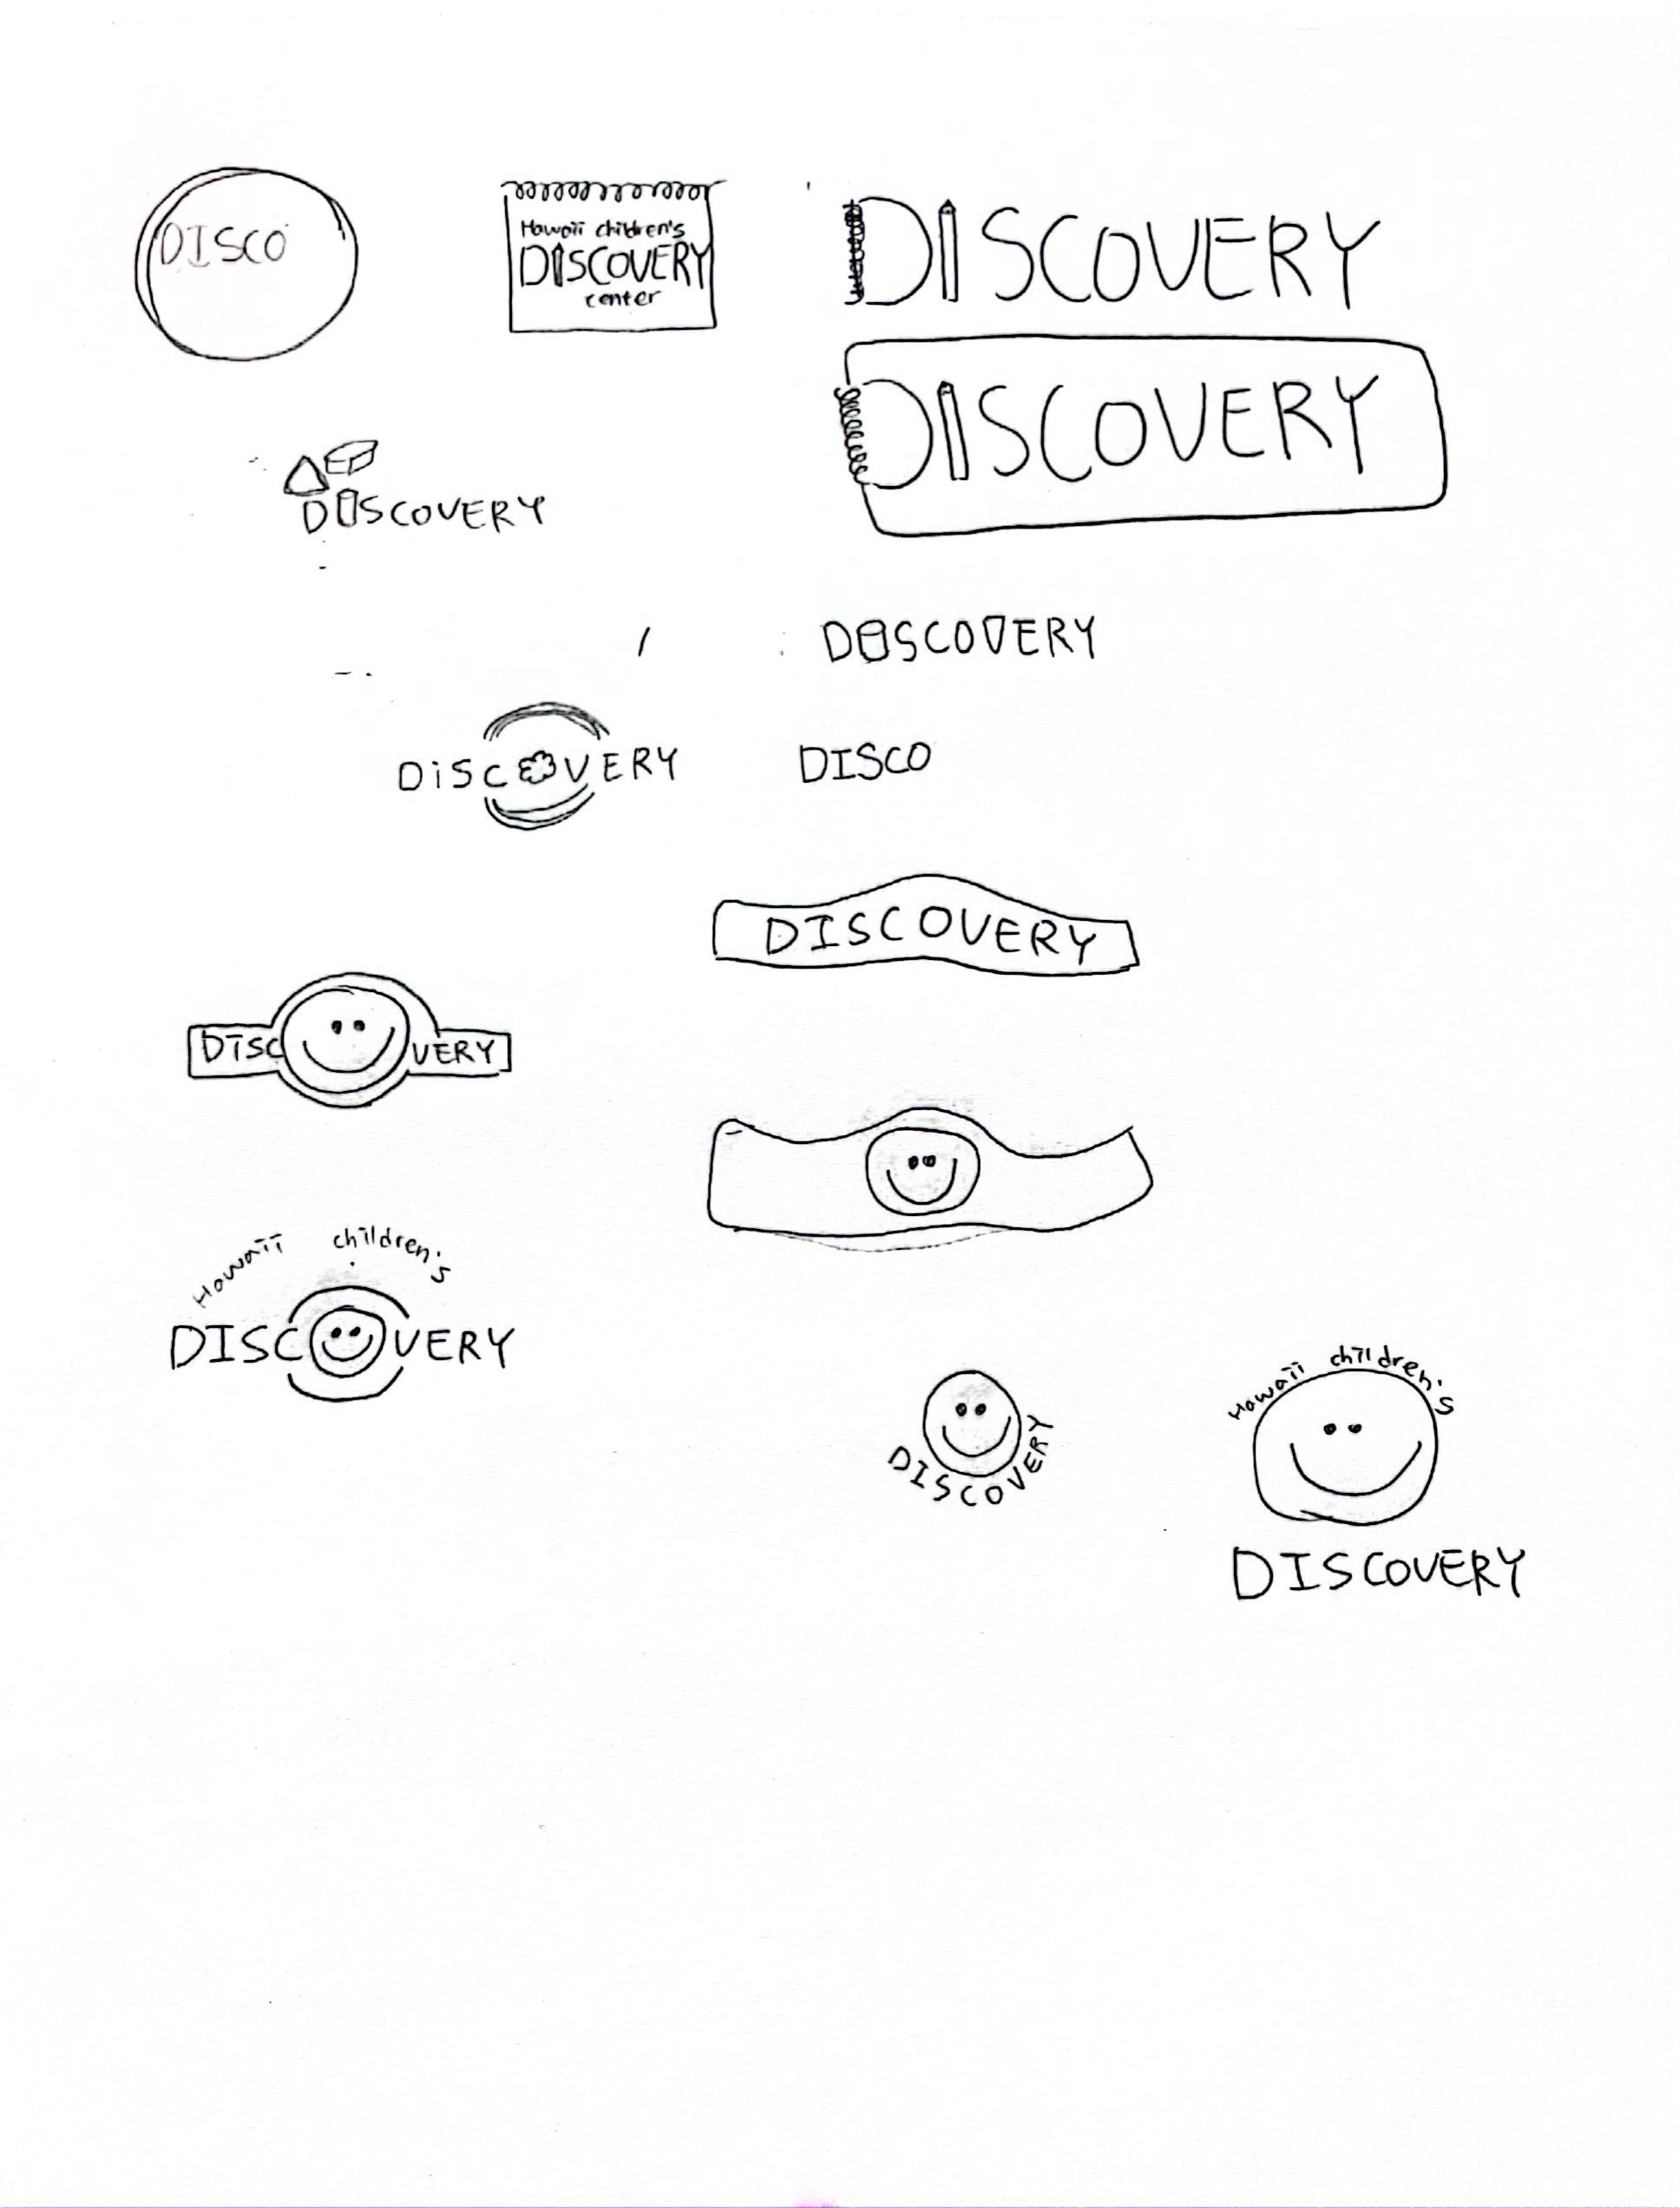 DISCO
Hawaii children's
DISCOVERY
center
DISCOVERY
DISCOVERY
DISCOVERY
DISCOVERY
DiSCOVERY
DISCO
DISCOVERY
DISC VERY
Hawaii children's
DISCOVERY
DISCOVERY
Hawaii children's
DISCOVERY